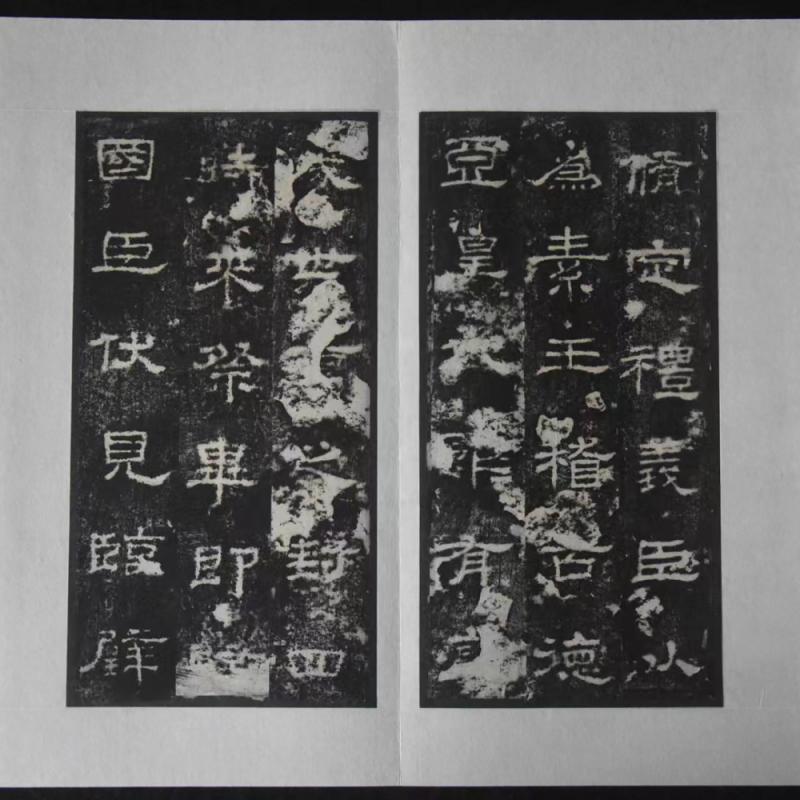 脩定禮義臣以
為素王稽古德
亞皇代有
成世享之封四
時來祭畢即
國臣伏見臨辟